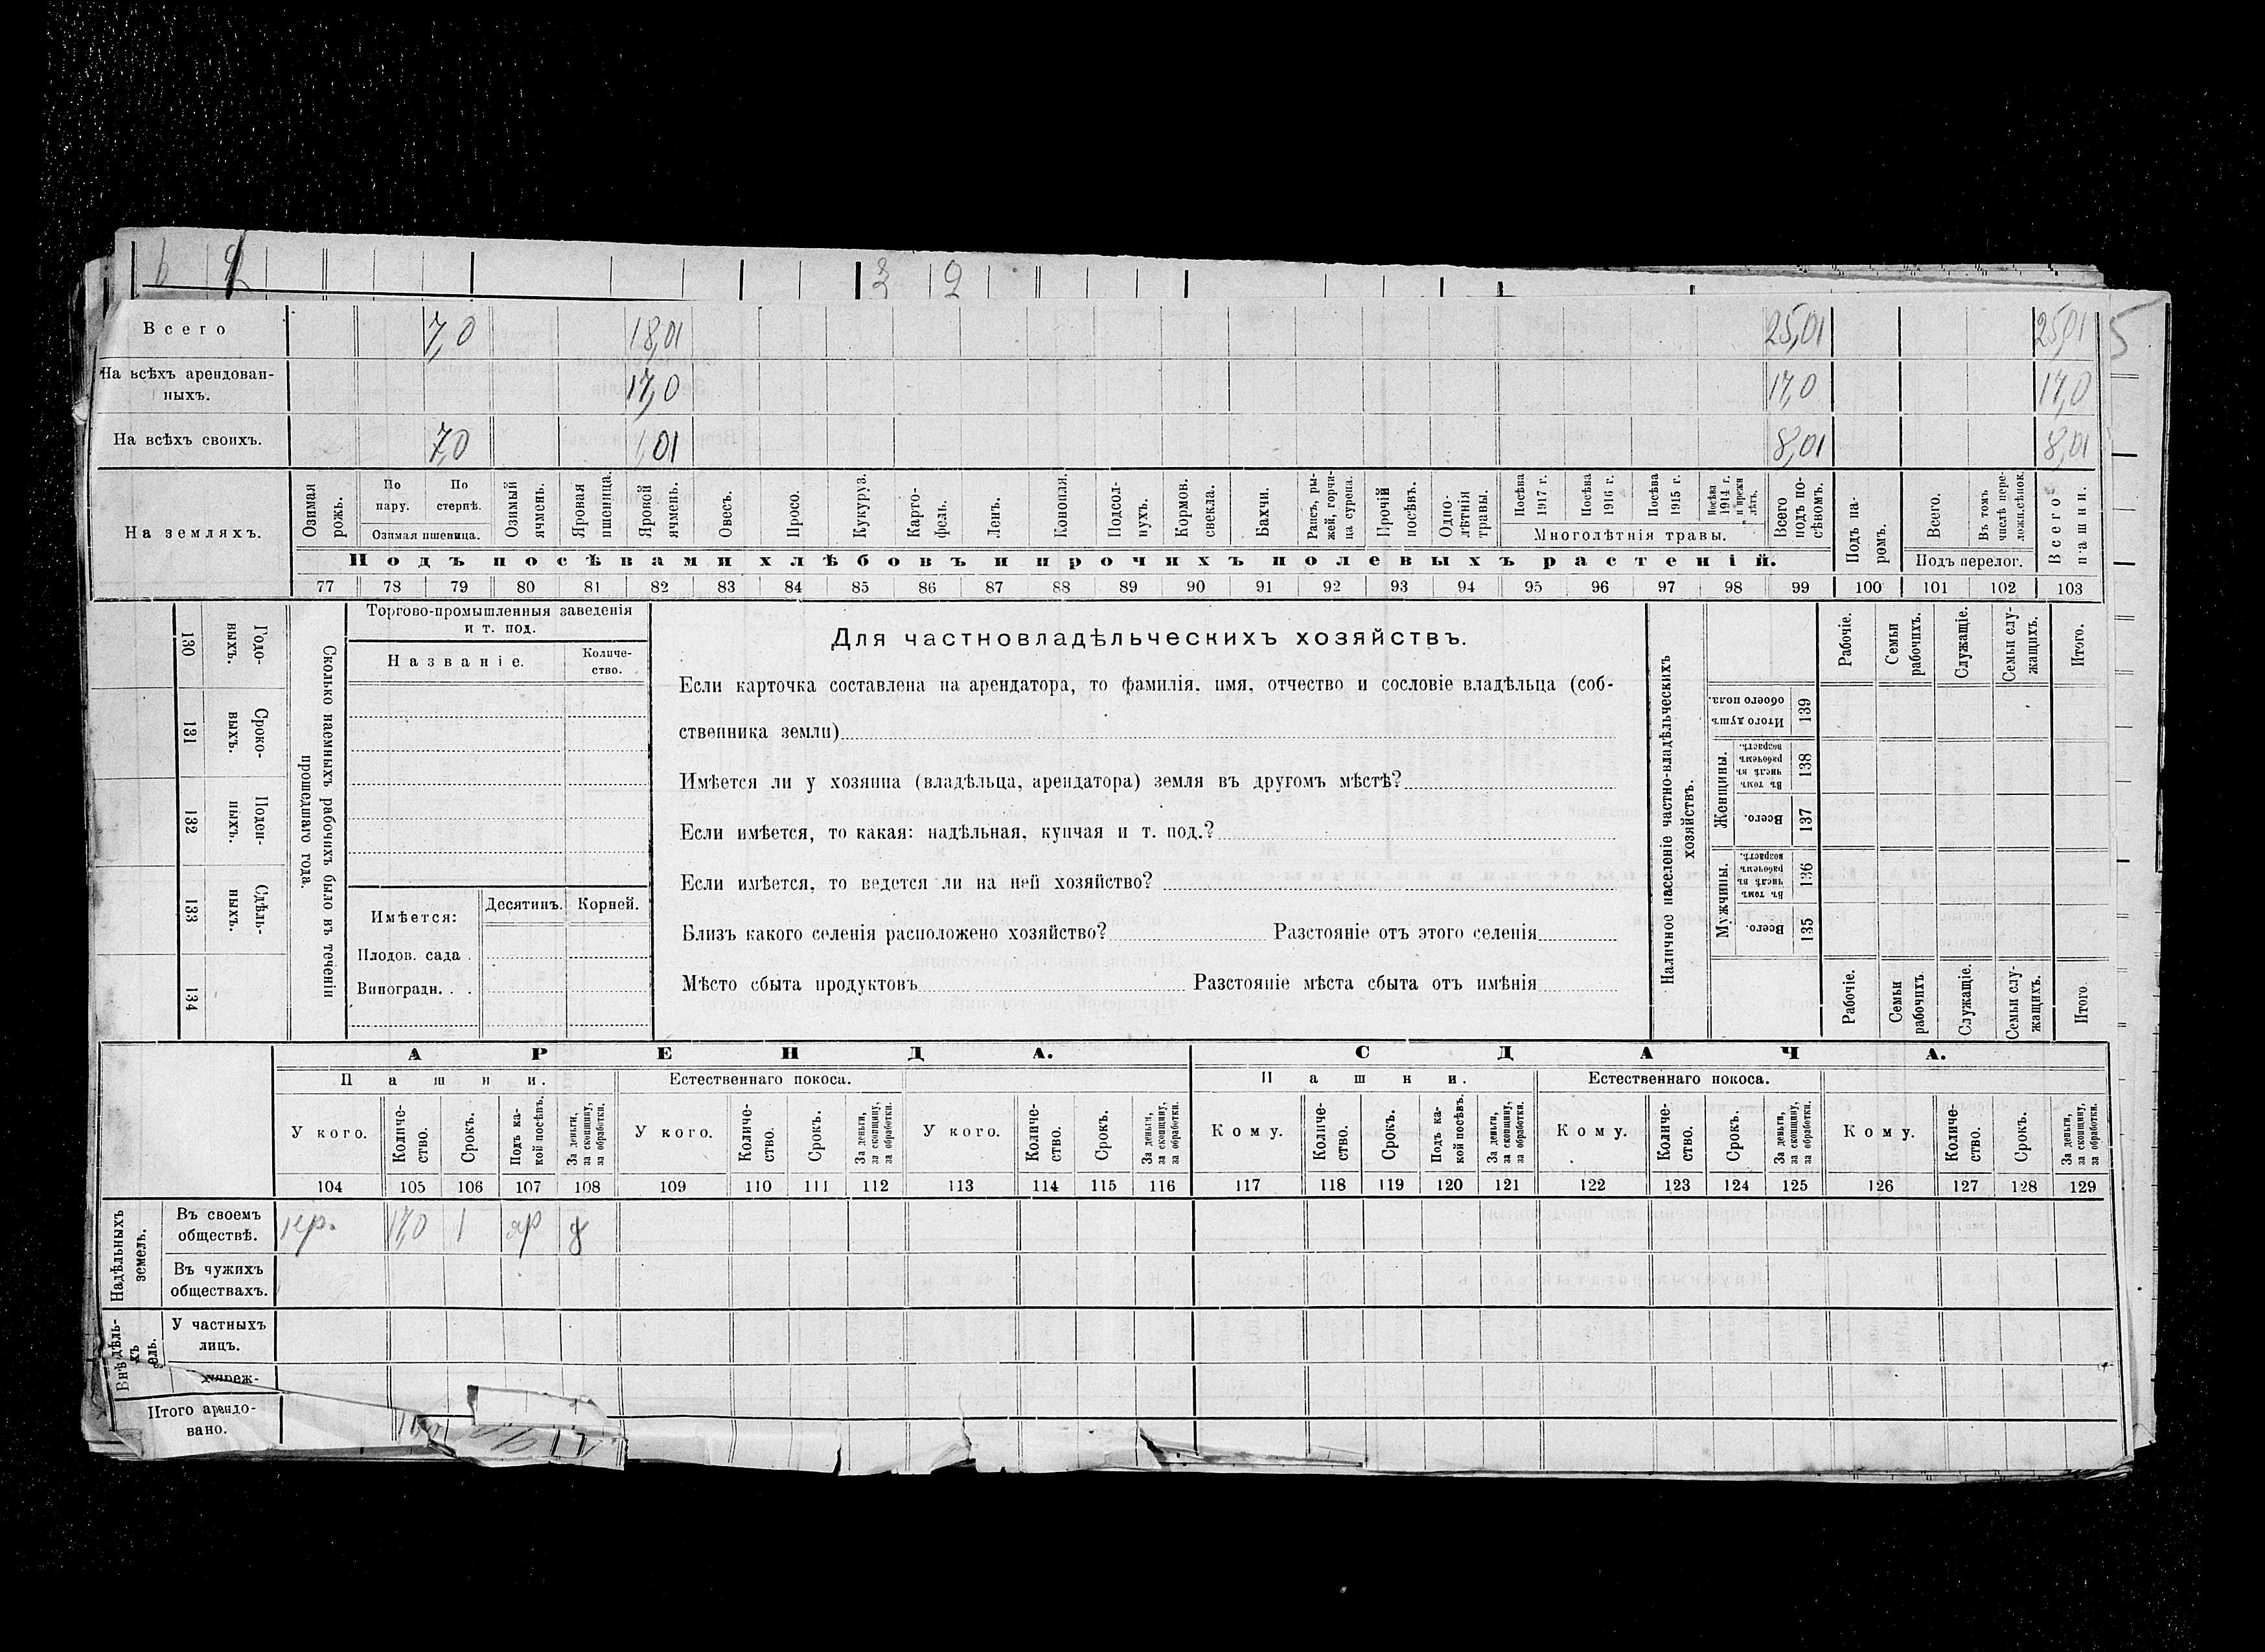 6 2 3 2
Всего 7,0 18,01 25,01 25,01 5
На всѣхъ арендован-
ныхъ. 17,0 17,0 17,0
На всѣхъ своихъ. 7,0 1,01 8,01 8,01
На земляхъ.
Озимая рожь.
По пару.
По стернѣ.
Озимая пшеница.
Озимый ячмень.
Яровая пшеница.
Яровой ячмень.
Овесъ.
Просо.
Кукуруз.
Карто-
фель.
Ленъ.
Конопля.
Подсол-
нухъ.
Кормов. свекла.
Бахчи.
Рапсъ, ры-
жей, горчи-
ца сурепа.
Прочій посѣвъ.
Одно-
лѣтнія травы.
Посѣва 1917 г.
Посѣва 1916 г.
Посѣва 1915 г.
Посѣва 1914 г. и прежн лѣтъ.
Многолѣтнія травы.
Всего подъ по-
сѣвомъ.
Подъ па-
ромъ.
Всего.
Въ томъ числѣ пере-
ложн.сѣнок.
Подъ перелог.
Всего пашни.
Подъ посѣвами хлѣбовъ и прочихъ полевыхъ растеній.
77 78 79 80 81 82 83 84 85 86 87 88 89 90 91 92 93 94 95 96 97 98 99 100 101 102 103
Годо-
выхъ.
130
Сроко-
выхъ.
131
Поден-
ныхъ.
132
Сдѣль-
ныхъ.
133
134
Сколько наемныхъ рабочихъ было въ теченіи
прошедшаго года.
Торгово-промышленныя заведенія
и т. под.
Названіе.
Количе-
ство.
Имѣется:
Десятинъ. Корней.
Плодов. сада .
Виноградн. . .
Для частновладѣльческихъ хозяйствъ.
Если карточка составлена на арендатора, то фамилія, имя, отчество и сословіе владѣльца (соб-
ственника земли)
Имѣется ли у хозяина (владѣльца, арендатора) земля въ другомъ мѣстѣ?
Если имѣется, то какая: надѣльная, купчая и т. под.?
Если имѣется, то ведется ли на ней хозяйство?
Близъ какого селенія расположено хозяйство? Разстояніе отъ этого селенія
Мѣсто сбыта продуктовъ Разстояніе мѣста сбыта отъ имѣнія
Наличное населеніе частно-владѣльческихъ
хозяйствъ.
Рабочіе.
Семьи рабочихъ.
Служащіе.
Семьи слу-
жащихъ.
Итого.
Итого душъ обоего пола.
139
Женщины.
Въ томъ числѣ въ рабочемъ возрастѣ.
138
Всего.
137
Мужчины.
Въ томъ числѣ въ рабочемъ возрастѣ.
136
Всего.
135
Рабочіе.
Семьи рабочихъ
Служащіе.
Семьи слу-
жащихъ.
Итого
АРЕНДА. СДАЧА.
Пашни. Естественнаго покоса. Пашни. Естественнаго покоса.
У кого.
Количе-
ство.
Срокъ.
Подъ ка-
кой посѣвъ.
За деньги, за скопщину, за обработки.
У кого.
Количе-
ство.
Срокъ.
За деньги, за скопщину, за обработки.
У кого.
Количе-
ство.
Срокъ.
За деньги, за скопщину, за обработки.
Кому.
Количе-
ство.
Срокъ.
Подъ ка-
кой посѣвъ.
За деньги, за скопщину, за обработки.
Кому.
Количе-
ство.
Срокъ.
За деньги, за скопщину, за обработки.
Кому.
Количе-
ство.
Срокъ.
За деньги, за скопщину, за обработки.
104 105 106 107 108 109 110 111 112 113 114 115 116 117 118 119 120 121 122 123 124 125 126 127 128 129
Надѣльныхъ
земель.
Въ своемъ
обществѣ. кр. 17,0 1 яр д
Въ чужихъ
обществахъ.
У частныхъ
лицъ.
Итого арендо-
вано.